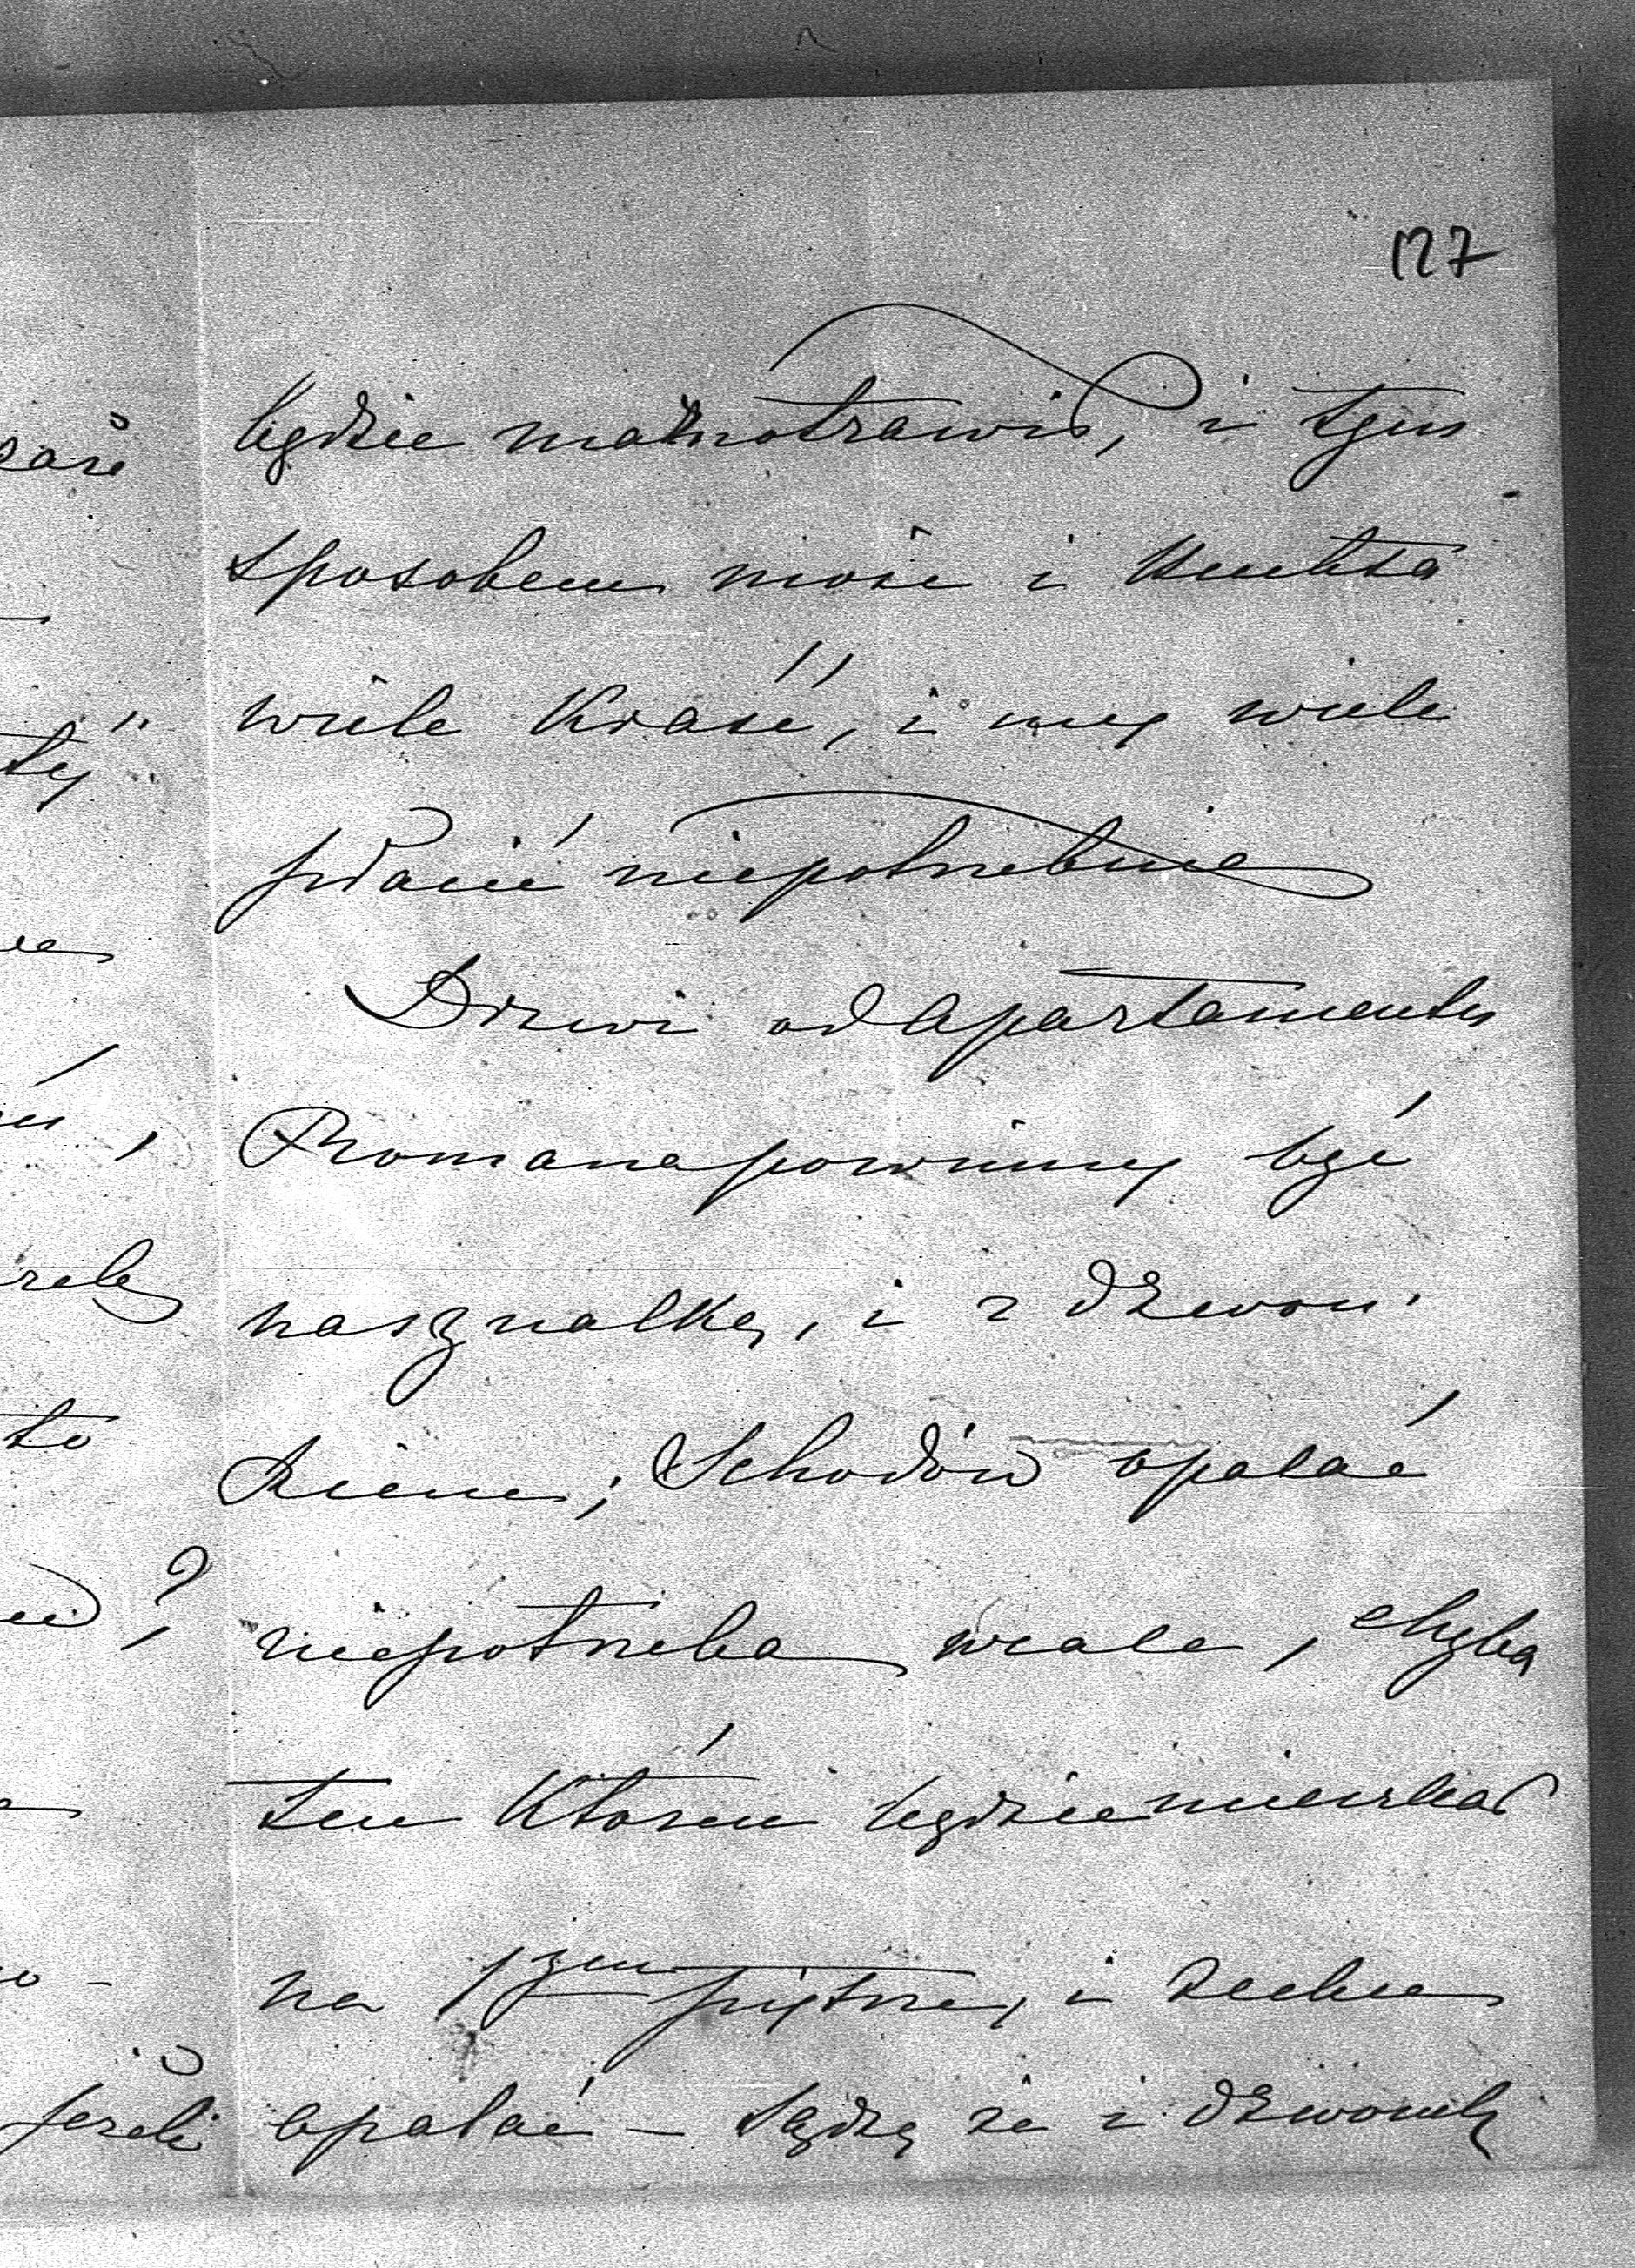 127
będzie marnotrawił, i tym
sposobem może i
wiele kraść, i my wiele
płacić niepotrzebnie
Drzwi od apartamentu
Romana powinny być
na sznalkę, i z dzwon-
kiem; Schodów opalać
niepotrzeba wcale, chyba
ten któren będzie mieszkał
na 1szem piętrze, i zechce
opalać – Sądzę że i dzwonek